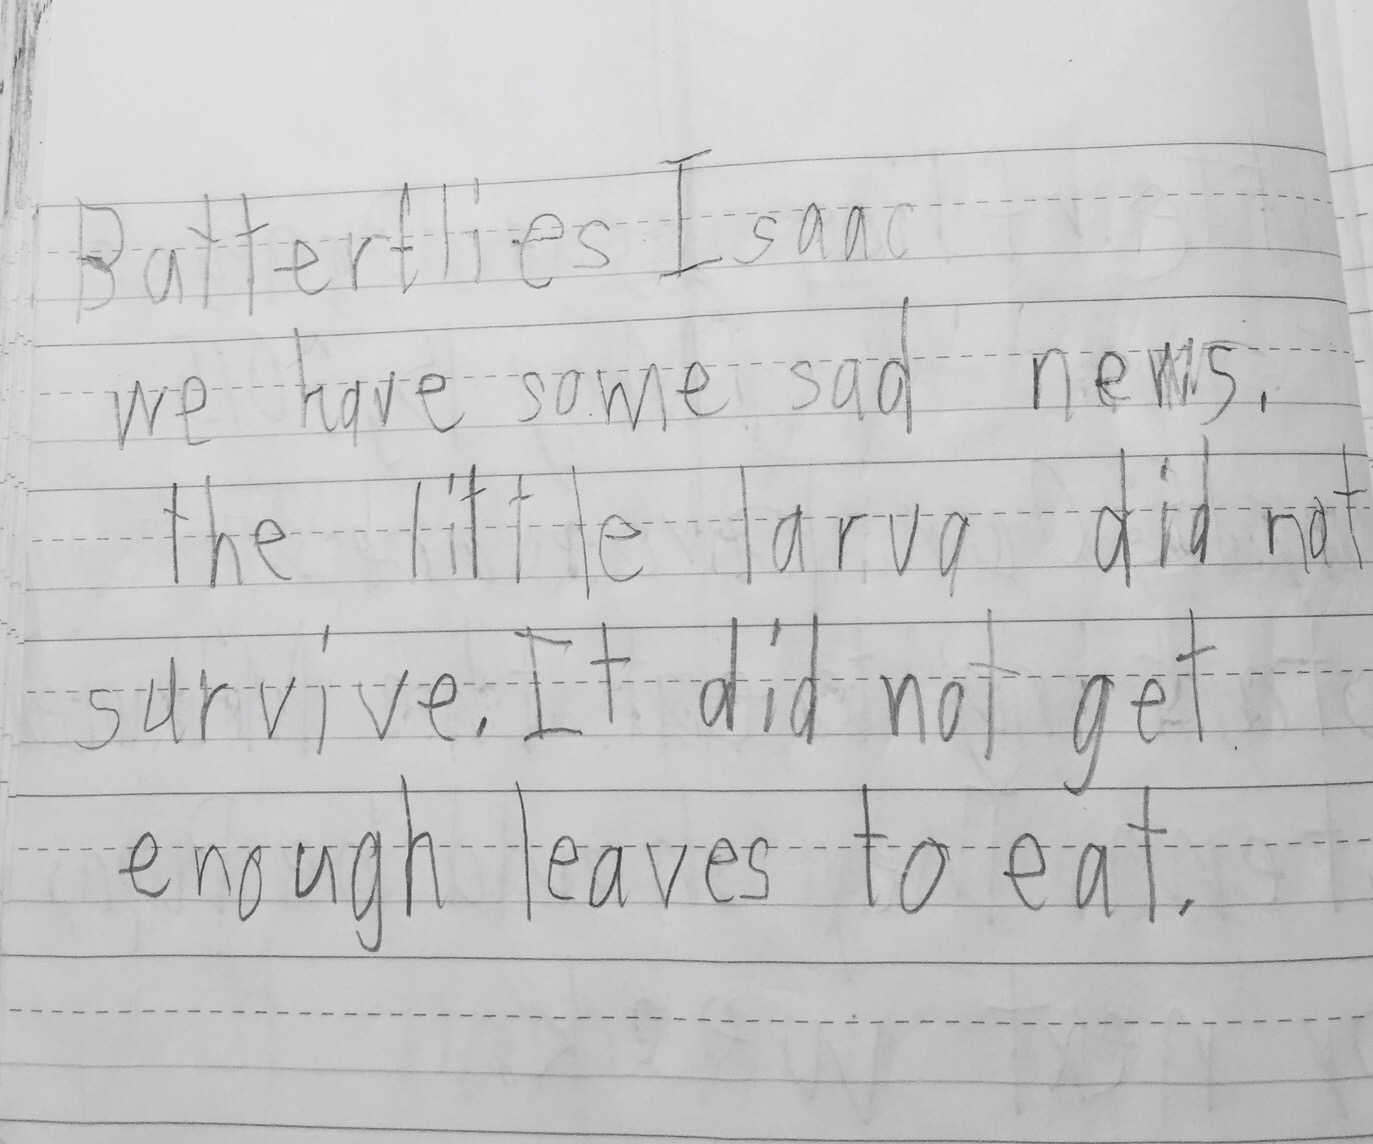 Batterflies Isaac
we have some sad news.
the little larva did not
survive. It did not get
enough leaves to eat.